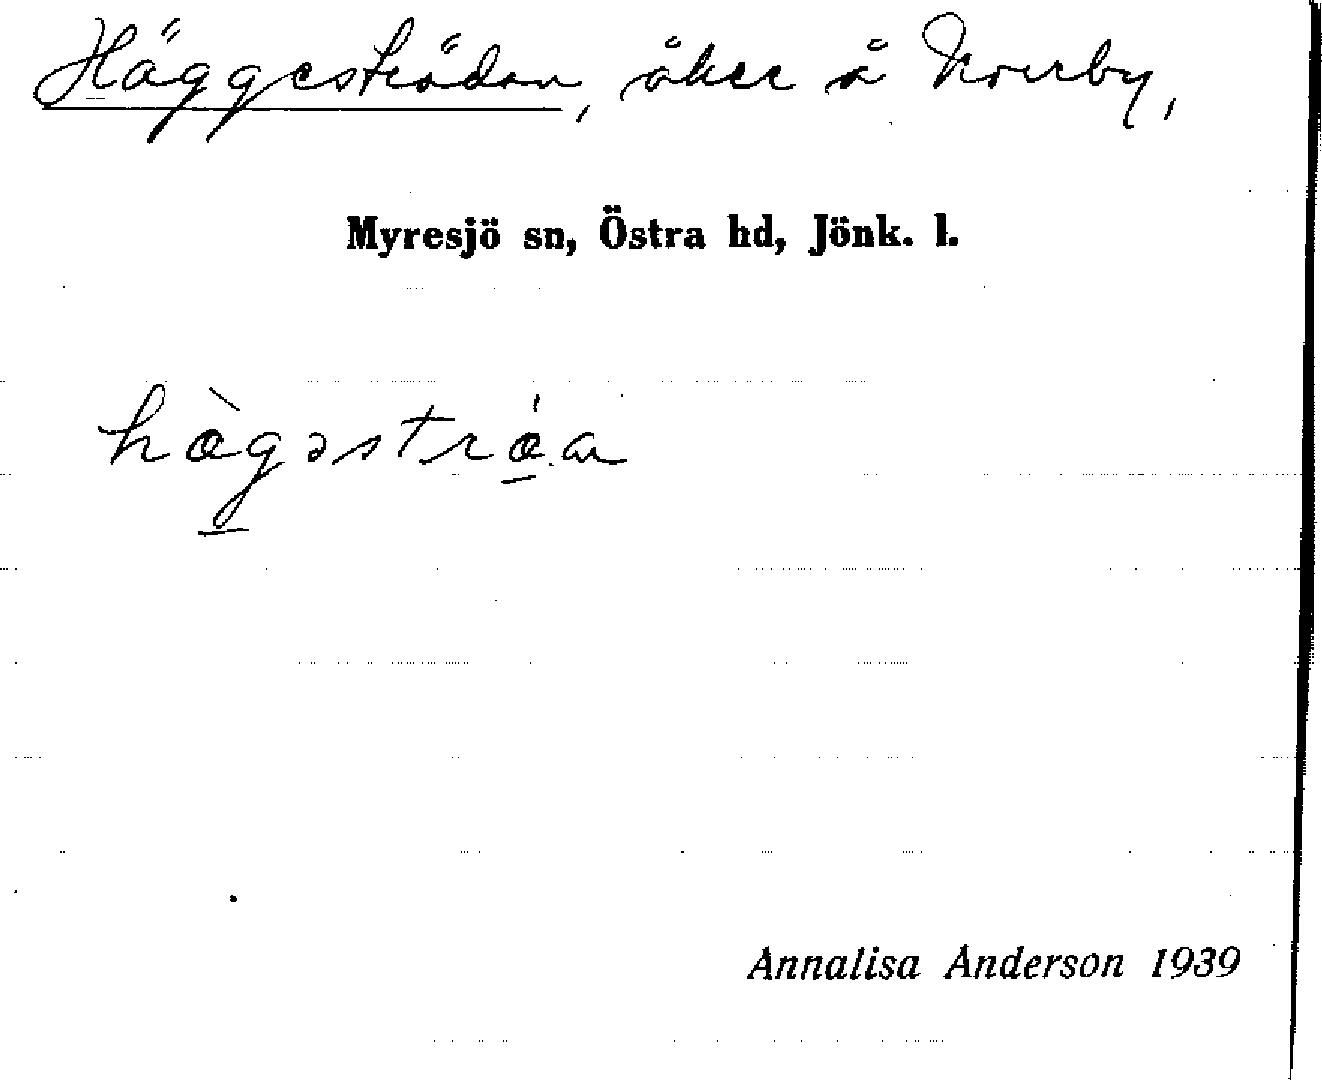 Häggeströdan, åker å Norrby,
Myresjö sn, Östra hd, Jönk. l.
hæ̀gəstrǿa
Annalisa Anderson 1939